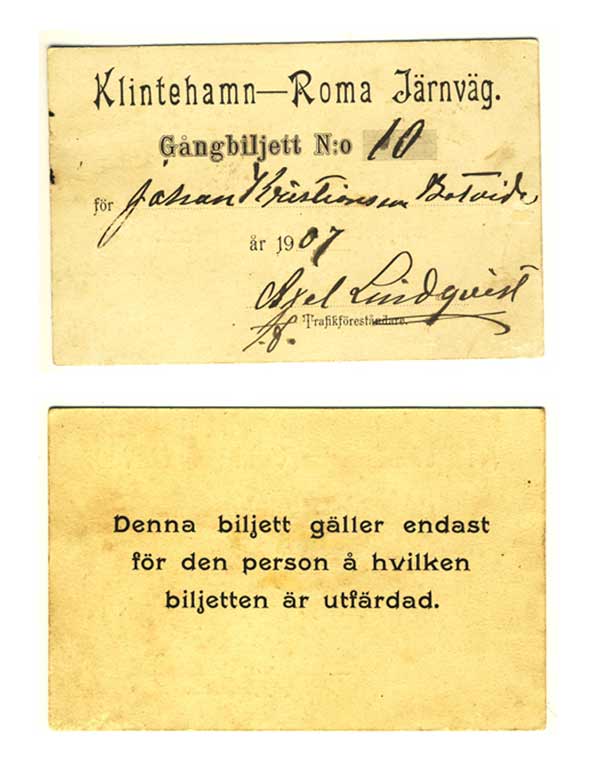 Klintehamn—Roma Järnväg.
Gångbiljett N:o 10
för Johan Kristiansson Botvide
år 1907
Axel Lindqvist
Trafikföreståndare.
Denna biljett gäller endast
för den person å hvilken
biljetten är utfärdad.